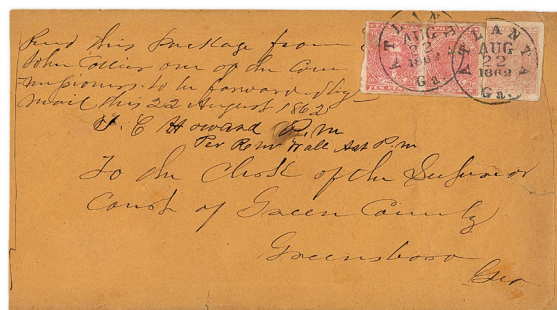 Recd this package from
John Collier one of the Com
missioners to be forwarded by
mail this 22 August 1862
T. C Howard P.m
Per Ro Wall Ast P.m
To the Clerk of the Superior
Court of Green County
Greensboro
Geo
ATLANTA
AUG
22
1862
Ga.
ATLANTA
AUG
22
1862
Ga.